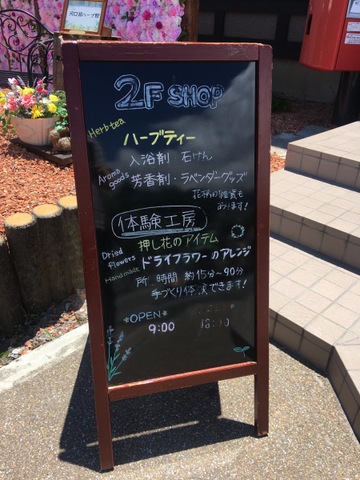 河口湖ハーブ館
2F SHOP
Herb tea
ハーブティー
入浴剤 石けん
Aroma goods
芳香剤・ラベンダーグッズ
花柄の雑貨も
あります!
体験工房
押し花のアイテム
Dried flowers
ドライフラワーのアレンジ
Handmade
所要時間 約15分~90分
手づくり体験できます!
*OPEN*
9:00